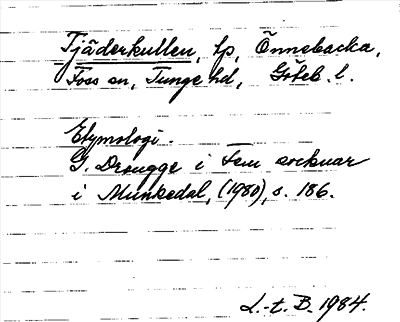 Tjäderkullen, lp, Önnebacka,
Foss sn, Tunge hd, Göteb. l.
Etymologi.
G. Drougge i Fem socknar
i Munkedal, (1980), s. 186.
L.-t. B. 1984.